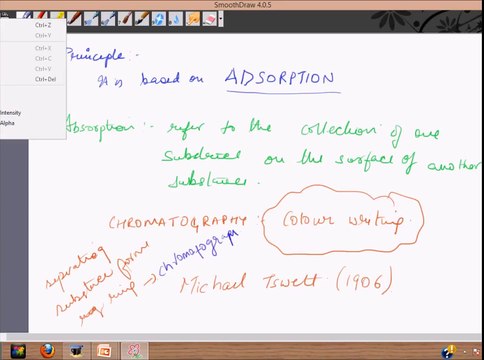 SmoothDraw 4.0.5
Ctrl+Z
Ctrl+Y
Ctrl+X
Ctrl+C
Ctrl+V
Ctrl+Del
Intensity
Alpha
Principle.
It is based on ADSORPTION
Absorption :- refer to the collection of one
substance on the surface of another
substance.
CHROMATOGRAPHY : Colour writing.
separating
substance forms
ring → chromatograph
Michael Tswett (1906)